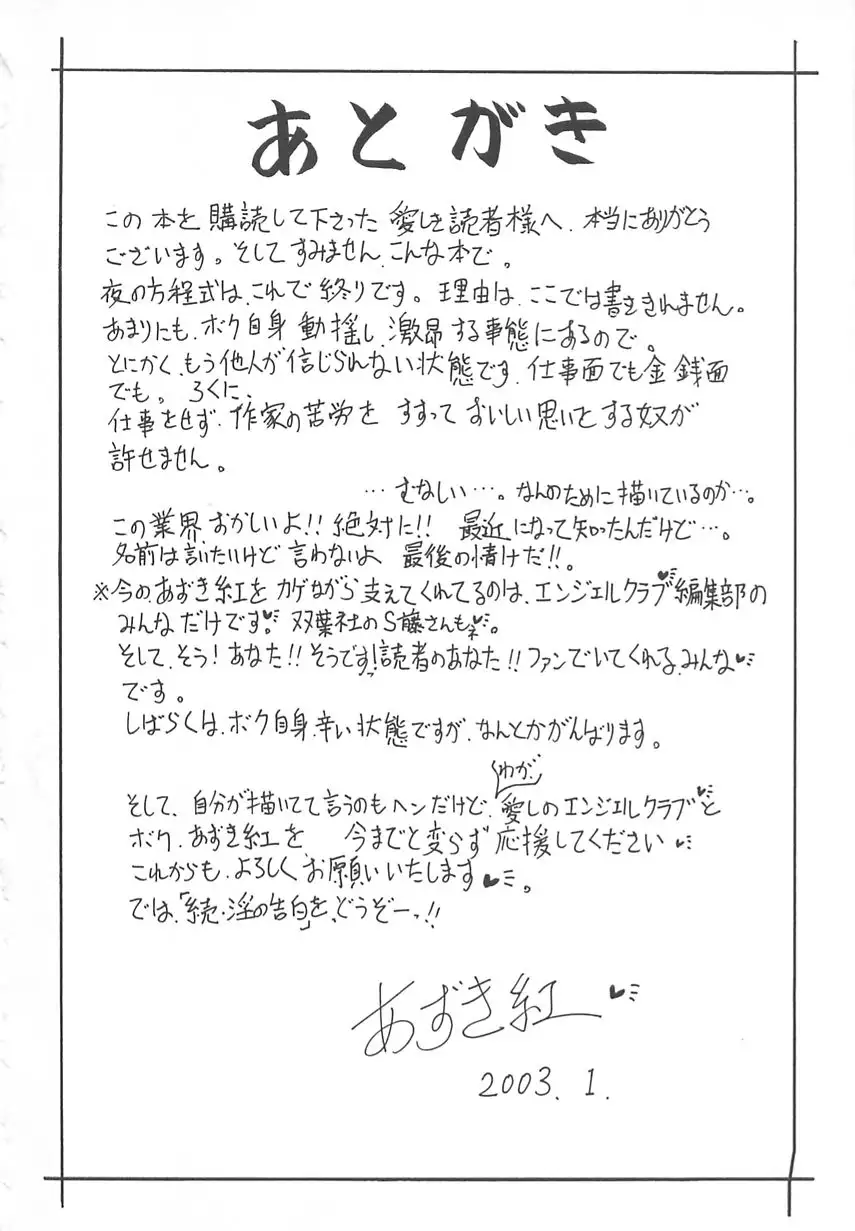 あとがき
この本を購読して下さった愛しき読者様へ、本当にありがとう
ございます。そしてすみません、こんな本で。
夜の方程式は、これで終りです。理由は、ここでは書ききれません。
あまりにも、ボク自身動揺し、激昂する事態にあるので。
とにかく、もう他人が信じられない状態です、仕事面でも金銭面
でも。ろくに、
仕事をせず、作家の苦労をすすっておいしい思いをする奴が
許せません。
…むなしい…。なんのために描いているのか…。
この業界、おかしいよ!!絶対に!!最近になって知ったんだけど…。
名前は言いたいけど言わないよ 最後の情けだ!!。
※今の、あずき紅をカゲながら支えてくれてるのは、エンジェルクラブ♥編集部の
みんなだけです♥。双葉社のS藤さんもネ♥。
そして、そう!あなた!!そうです!読者のあなた!!ファンでいてくれる、みんな♥
です。
しばらくは、ボク自身、辛い状態ですが、なんとかがんばります。
わが、
そして、自分が描いてて言うのもヘンだけど、愛しのエンジェルクラブ♥と
ボク、あずき紅を、今までと変らず応援してください♥
これからも、よろしくお願いいたします♥。
では、「続・淫の告白」を、どうぞーッ!!
あずき紅♥
2003.1.